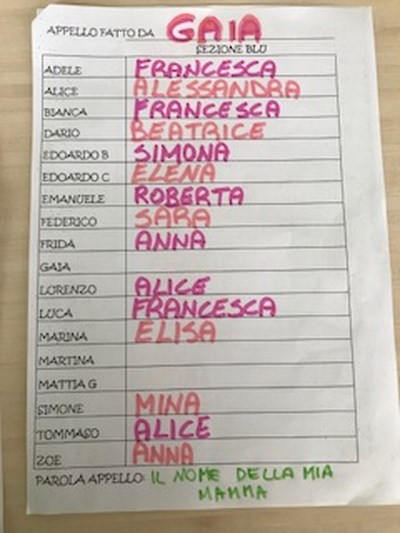 APPELLO FATTO DA GAIA
SEZIONE BLU
ADELE FRANCESCA
ALICE ALESSANDRA
BIANCA FRANCESCA
DARIO BEATRICE
EDOARDO B SIMONA
EDOARDO C ELENA
EMANUELE ROBERTA
FEDERICO SARA
FRIDA ANNA
GAIA
LORENZO ALICE
LUCA FRANCESCA
MARINA ELISA
MARTINA
MATTIA G
SIMONE MINA
TOMMASO ALICE
ZOE ANNA
PAROLA APPELLO: IL NOME DELLA MIA
MAMMA